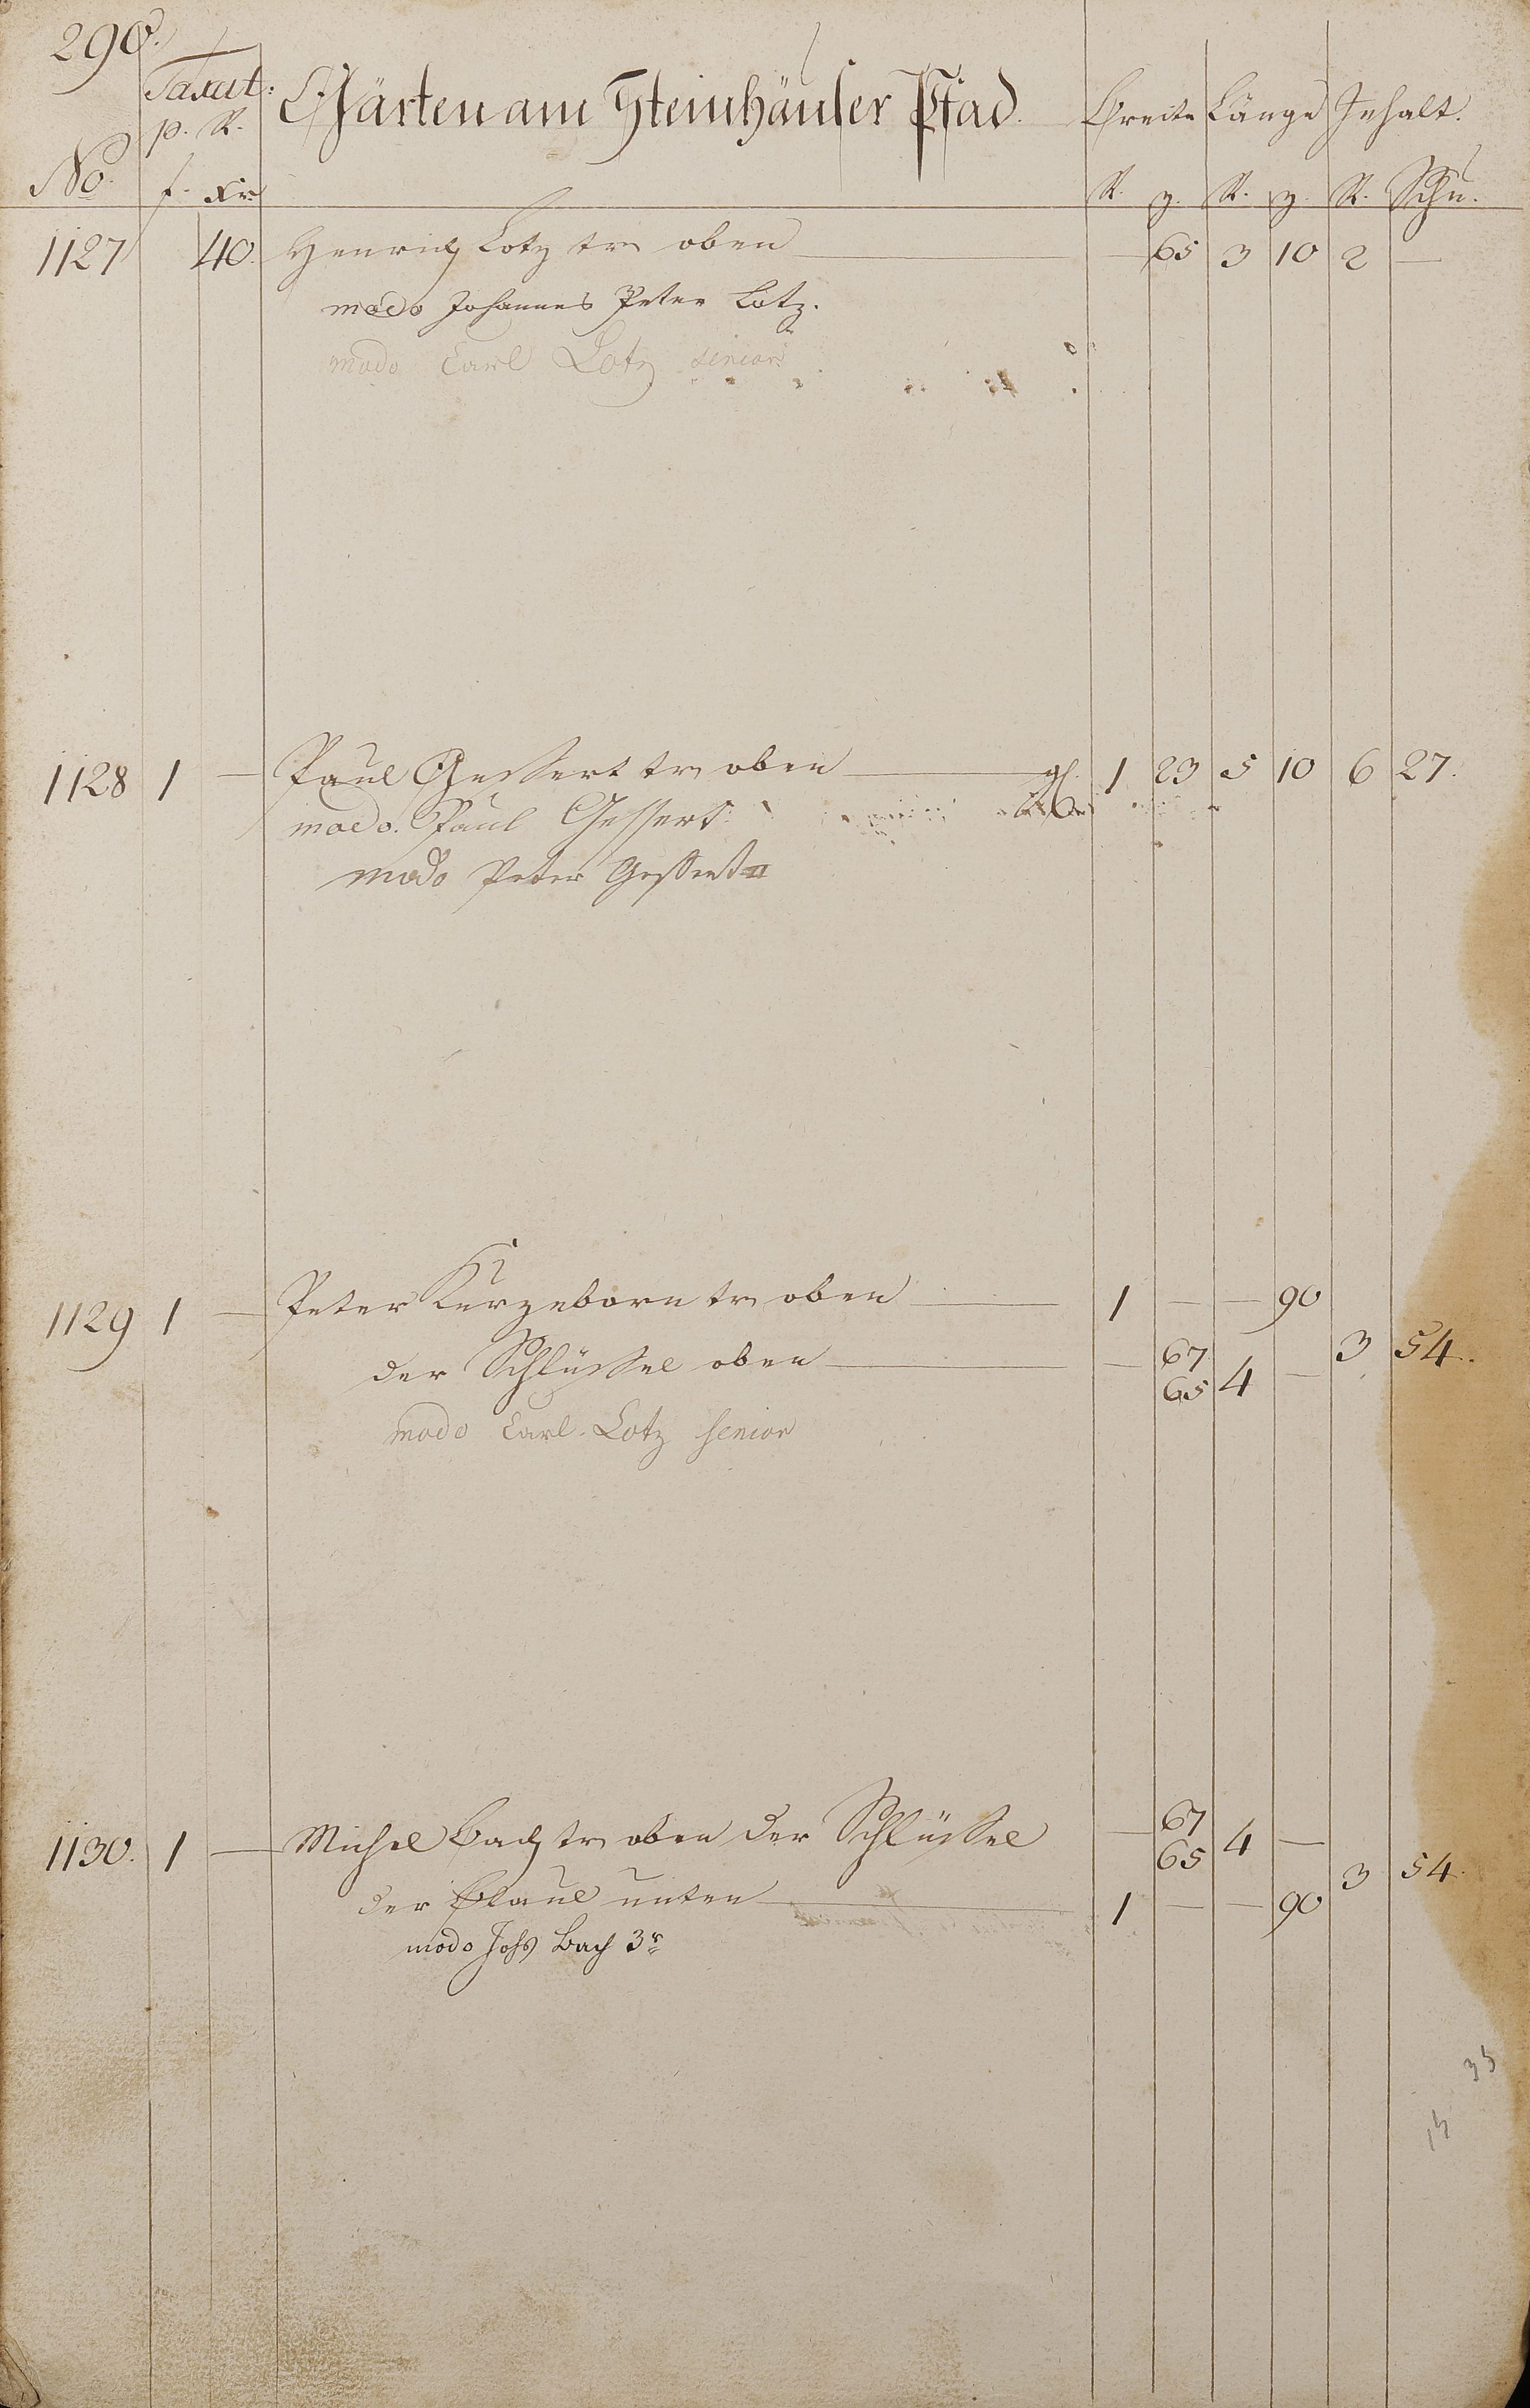 290.
Taxat:
p. R.
Gärten am Steinhäuser Pfad.
Breite Länge Inhalt.
No. f. xr. R. z. R. z. R. Schu.
1127 40. Henrich Lotz tr oben — — 65 3 10 2 —
modo Johannes Peter Lotz.
modo Carl Lotz senior
1128 1 — Paul Gessert tr oben — 1 23 5 10 6 27.
modo. Paul Gessert
modo Peter Gessert II
1129 1 — Peter Kurzeborn tr oben — 1 — — 90
der Schlüssel oben — — 67 65 4 — 3 54.
modo Carl Lotz senior
1130. 1 — Michel Bach tr oben der Schlüssel — 67 65 4 —
der Plaul unten — 1 — — 90 3 54.
modo Johs Bach 3r
35
15